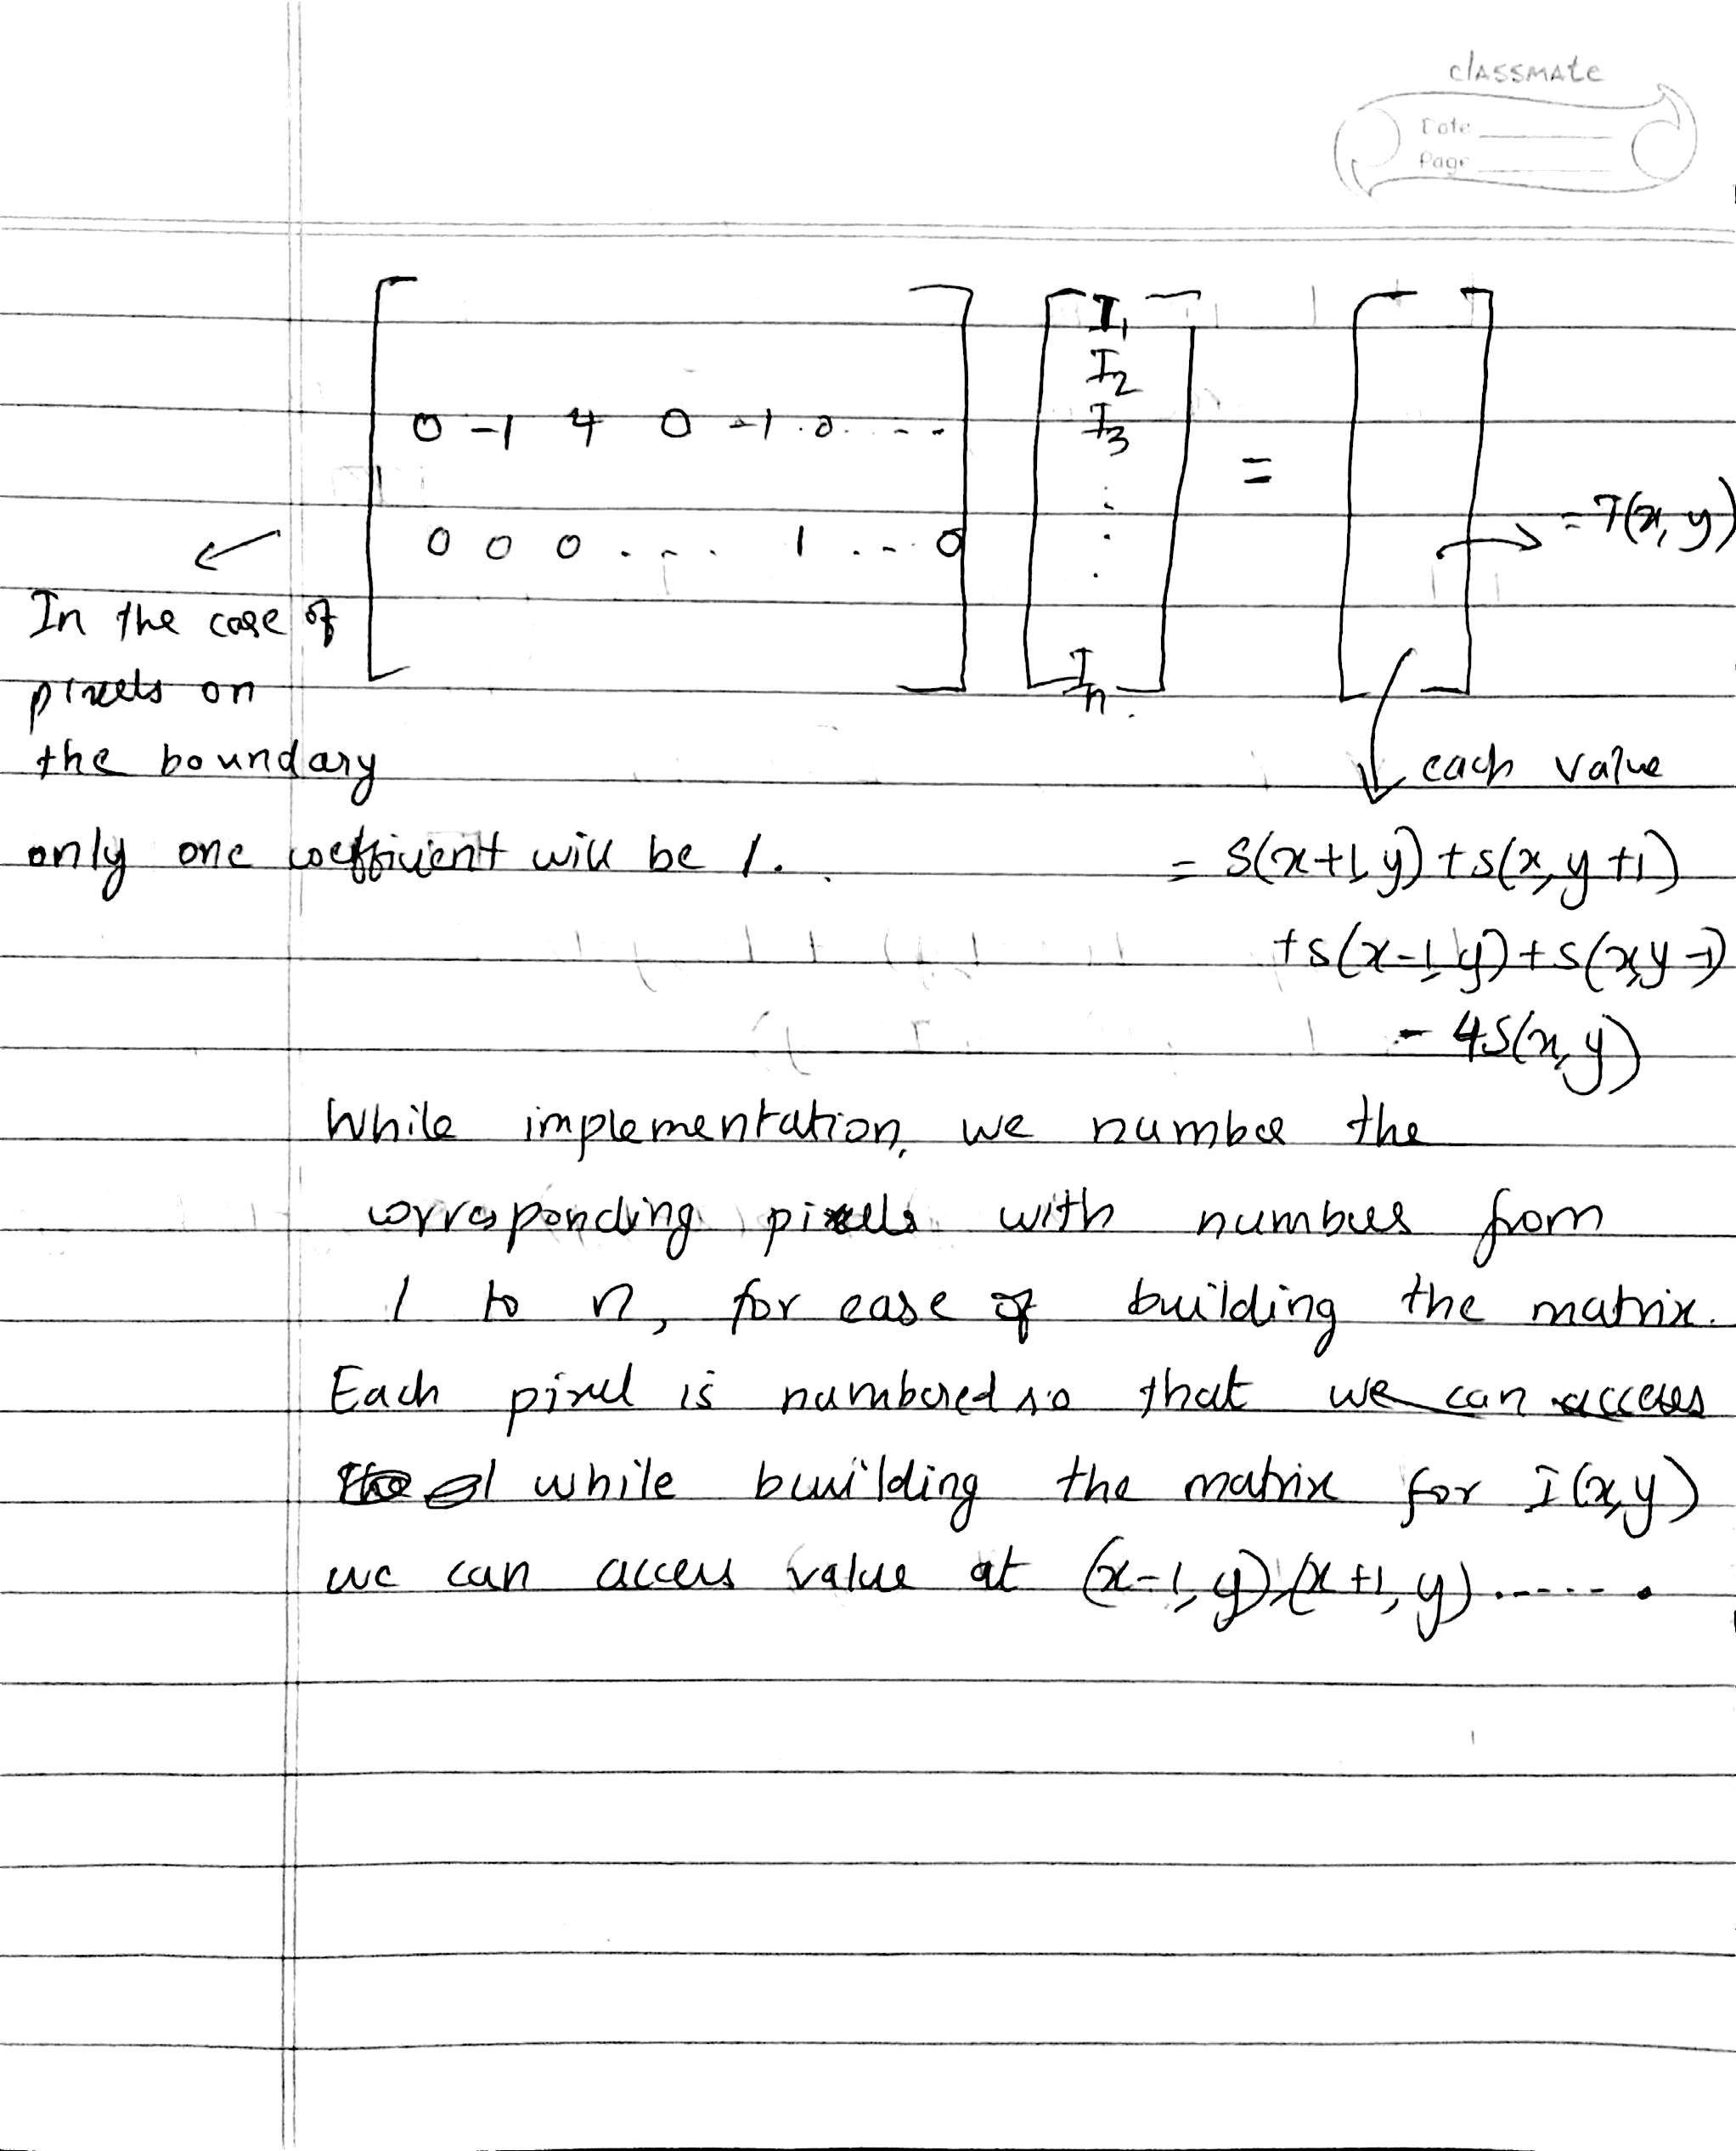 classmate
Date
Page
I1
I2
0 -1 4 0 -1 0 . . . . I3
=
= T(x, y)
0 0 0 . . . . 1 . . . 0
In the case of
In
pixels on
the boundary
each value
only one coefficient will be 1.
= S(x+1, y) + S(x, y+1)
+ S(x-1, y) + S(x, y-1)
- 4S(x, y)
While implementation, we number the
corresponding pixels with numbers from
1 to n, for ease of building the matrix.
Each pixel is numbered so that we can access
while building the matrix for I(x, y)
we can access value at (x-1, y), (x+1, y) .......